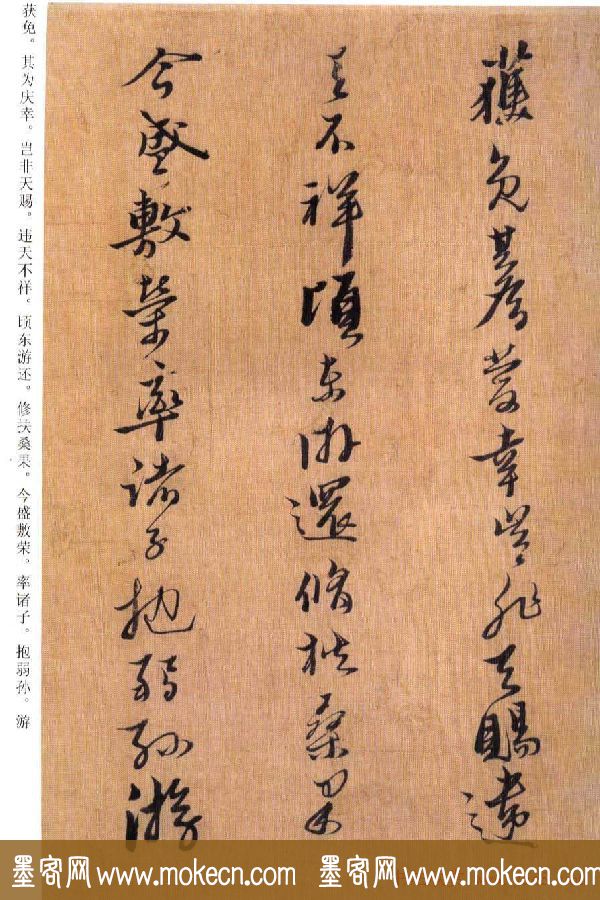 獲免其為慶幸豈非天賜違
天不祥頃東游還脩扶桑果
今盛敷榮率諸子抱弱孫游
获免。其为庆幸。岂非天赐。违天不祥。顷东游还。修扶桑果。今盛敷荣。率诸子。抱弱孙。游
墨客网 www.mokecn.com 墨客网 www.mokecn.com